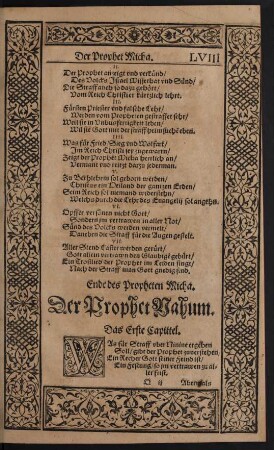 Der Prophet Micha. LVIII
II
Der Prophet anzeigt vnd verkünd/
Des Volcks Israel Missethat vnd Sünd/
Die Straff auch so dazu gehört/
Vom Reich Christi er kürtzlich lehrt.
III
Fürsten Priester vnd falsche Lehr/
Werden vom Propheten gestraffet sehr/
Weil sie in leben/
Wil sie Gott mit der straff heimsuchē eben.
IIII
Was für Fried Sieg vnd Wolfart/
Im Reich Christi sey
Zeigt der Prophet Micha herrlich an/
Vermant vnd reitzt darzu jederman.
V.
Zu Bethlehem sol geborn werden/
Christus ein Heiland der gantzen Erden/
Seim Reich sol niemand widerstehn/
Welchs durch die Lehr des Euangelij sol angehn.
VI.
Opffer versünen nicht Gott/
Sondern jm vertrawen in aller Not/
Sünd des Volcks werden vermelt/
Daneben die Straff für die Augen gestelt.
VII
Aller Stend Laster werden gerürt/
Gott allein vertrawn den Glaubigē gebürt/
Ein Trostlied der Prophet im Leiden singt/
Nach der Straff man Gott gnedig find.
Ende des Propheten Micha.
Der Prophet Nahum.
Das Erste Capittel.
Was für Straff vber Niniue ergehen
Soll/ gibt der Prophet zuuerstehen,
Ein Recher Gott seiner Feind ist/
Ein Festung/ so jm vertrawen zu al-
ler frist.
O ij